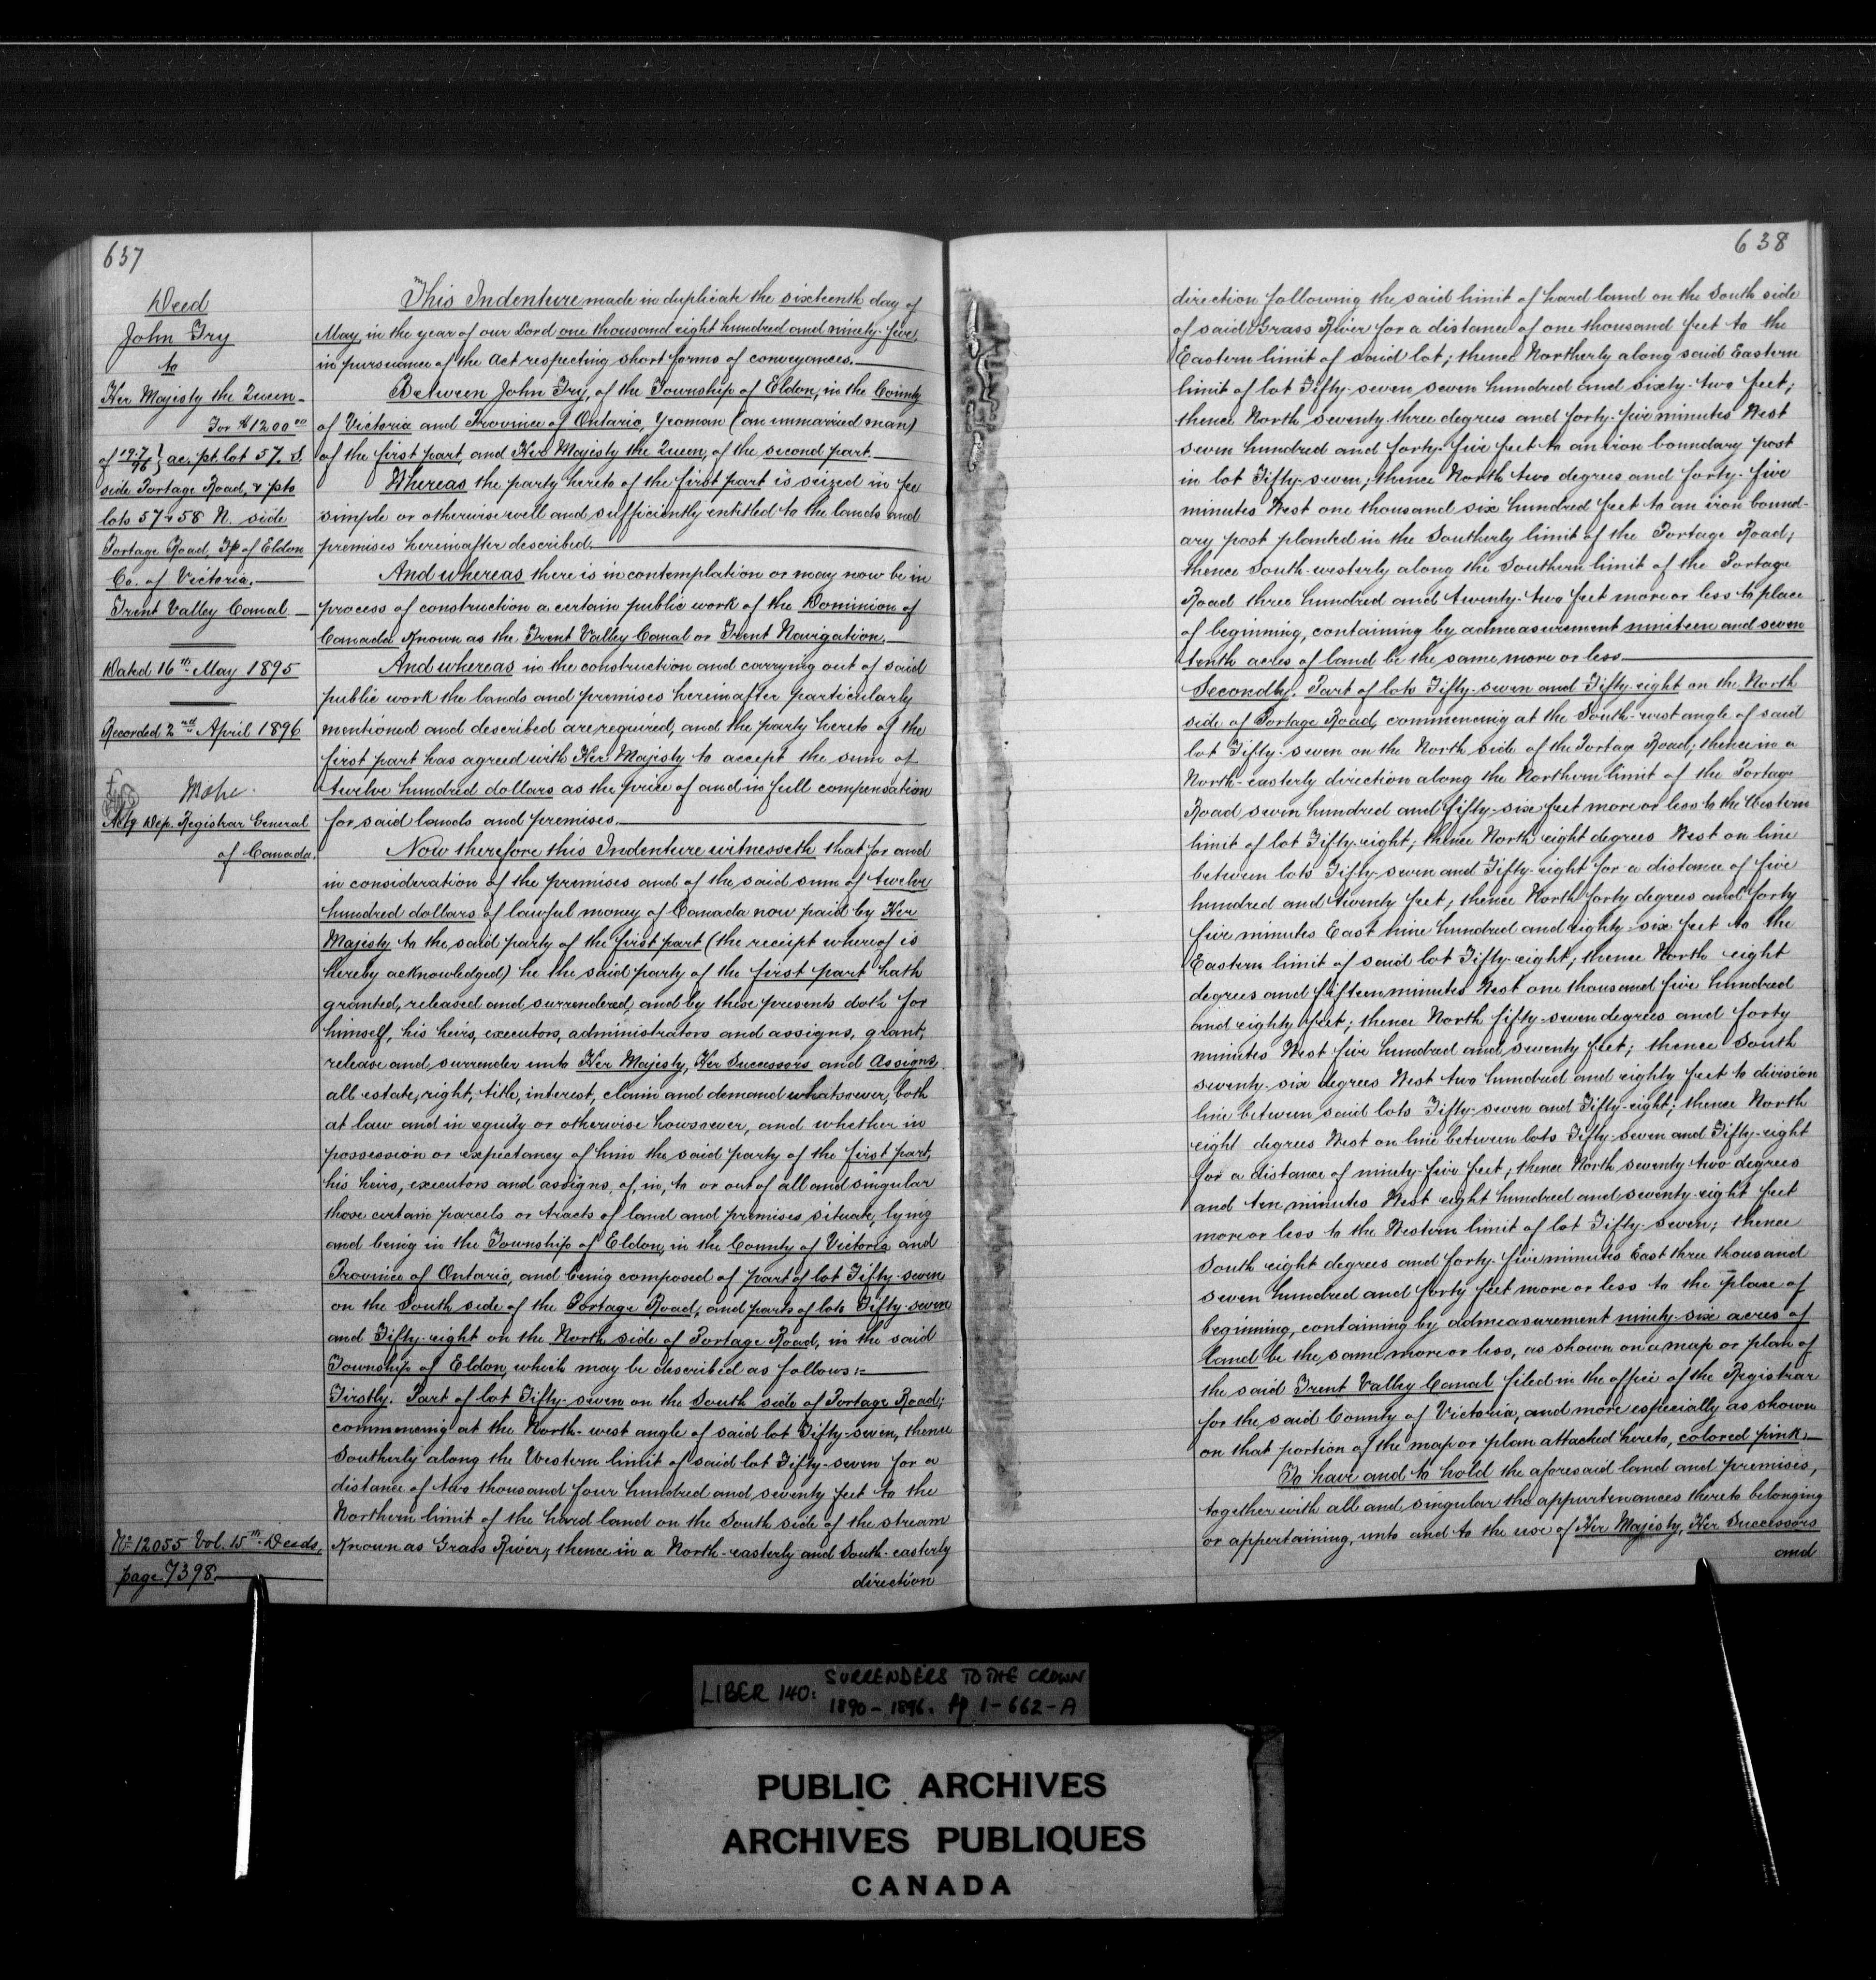 637
Deed
John Fry
to
Her Majesty the Queen -
For $1200 00
of 19.7/96 } ac. pt. lot 57. S.
side Portage Road, & pts
lots 57 & 58 N. side
Portage Road, Tp of Eldon
Co. of Victoria.
Trent Valley Canal
Dated 16th May 1895
Recorded 2nd April 1896
Actg Dep. Registrar General
of Canada.
No 12055 Vol. 15th Deeds,
page 7398
This Indenture made in duplicate the sixteenth day of
May, in the year of our Lord one thousand eight hundred and ninety-five,
in pursuance of the Act respecting short forms of conveyances.
Between John Fry, of the Township of Eldon, in the County
of Victoria and Province of Ontario, Yeoman (an unmarried man)
of the first part, and Her Majesty the Queen, of the second part.
Whereas the party hereto of the first part is seized in fee
simple or otherwise well and sufficiently entitled to the lands and
premises hereinafter described.
And whereas there is in contemplation or may now be in
process of construction a certain public work of the Dominion of
Canada known as the Trent Valley Canal or Trent Navigation.
And whereas in the construction and carrying out of said
public work the lands and premises hereinafter particularly
mentioned and described are required, and the party hereto of the
first part has agreed with Her Majesty to accept the sum of
twelve hundred dollars as the price of and in full compensation
for said lands and premises.
Now therefore this Indenture witnesseth that for and
in consideration of the premises and of the said sum of twelve
hundred dollars of lawful money of Canada now paid by Her
Majesty to the said party of the first part (the receipt whereof is
hereby acknowledged) he the said party of the first part hath
granted, released and surrendered, and by these presents doth for
himself, his heirs, executors, administrators and assigns, grant,
release and surrender unto Her Majesty, Her Successors and Assigns
all estate, right, title, interest, claim and demand whatsoever, both
at law and in equity or otherwise howsoever, and whether in
possession or expectancy of him the said party of the first part,
his heirs, executors and assigns, of, in, to or out of all and singular
those certain parcels or tracts of land and premises situate, lying
and being in the Township of Eldon, in the County of Victoria and
Province of Ontario, and being composed of part of lot Fifty-seven
on the South side of the Portage Road, and parts of lots Fifty-seven
and Fifty-eight on the North side of Portage Road, in the said
Township of Eldon, which may be described as follows:-
Firstly. Part of lot Fifty-seven on the South side of Portage Road;
commencing at the North-west angle of said lot Fifty-seven, thence
Southerly along the Western limit of said lot Fifty-seven for a
distance of two thousand four hundred and seventy feet to the
Northern limit of the hard land on the South side of the stream
known as Grass River, thence in a North-easterly and South-easterly
direction
638
direction following the said limit of hard land on the South side
of said Grass River for a distance of one thousand feet to the
Eastern limit of said lot; thence Northerly along said Eastern
limit of lot Fifty-seven seven hundred and sixty-two feet;
thence North seventy three degrees and forty-five minutes West
seven hundred and forty-five feet to an iron boundary post
in lot Fifty-seven; thence North two degrees and forty-five
minutes West one thousand six hundred feet to an iron bound-
ary post planted in the Southerly limit of the Portage Road;
thence South-westerly along the Southern limit of the Portage
Road three hundred and twenty-two feet more or less to place
of beginning, containing by admeasurement nineteen and seven
tenth acres of land be the same more or less
Secondly. Part of lots Fifty-seven and Fifty-eight on the North
side of Portage Road, commencing at the South-west angle of said
lot Fifty-seven on the North side of the Portage Road; thence in a
North-easterly direction along the Northern limit of the Portage
Road seven hundred and fifty-six feet more or less to the Western
limit of lot Fifty-eight; thence North eight degrees West on line
between lots Fifty-seven and Fifty-eight for a distance of five
hundred and twenty feet; thence North forty degrees and forty
five minutes East nine hundred and eighty-six feet to the
Eastern limit of said lot Fifty-eight; thence North eight
degrees and fifteen minutes West one thousand five hundred
and eighty feet; thence North fifty-seven degrees and forty
minutes West five hundred and seventy feet; thence South
seventy-six degrees West two hundred and eighty feet to division
line between said lots Fifty-seven and Fifty-eight; thence North
eight degrees West on line between lots Fifty-seven and Fifty-eight
for a distance of ninety-five feet; thence North seventy two degrees
and ten minutes West eight hundred and seventy-eight feet
more or less to the Western limit of lot Fifty-seven; thence
South eight degrees and forty-five minutes East three thousand
seven hundred and forty feet more or less to the place of
beginning, containing by admeasurement ninety-six acres of
land be the same more or less, as shown on a map or plan of
the said Trent Valley Canal filed in the office of the Registrar
for the said County of Victoria, and more especially as shown
on that portion of the map or plan attached hereto, colored pink.
To have and to hold the aforesaid land and premises,
together with all and singular the appurtenances thereto belonging
or appertaining, unto and to the use of Her Majesty, Her Successors
and
LIBER 140: SURRENDERS TO THE CROWN
1890 - 1896. pp 1-662-A
PUBLIC ARCHIVES
ARCHIVES PUBLIQUES
CANADA